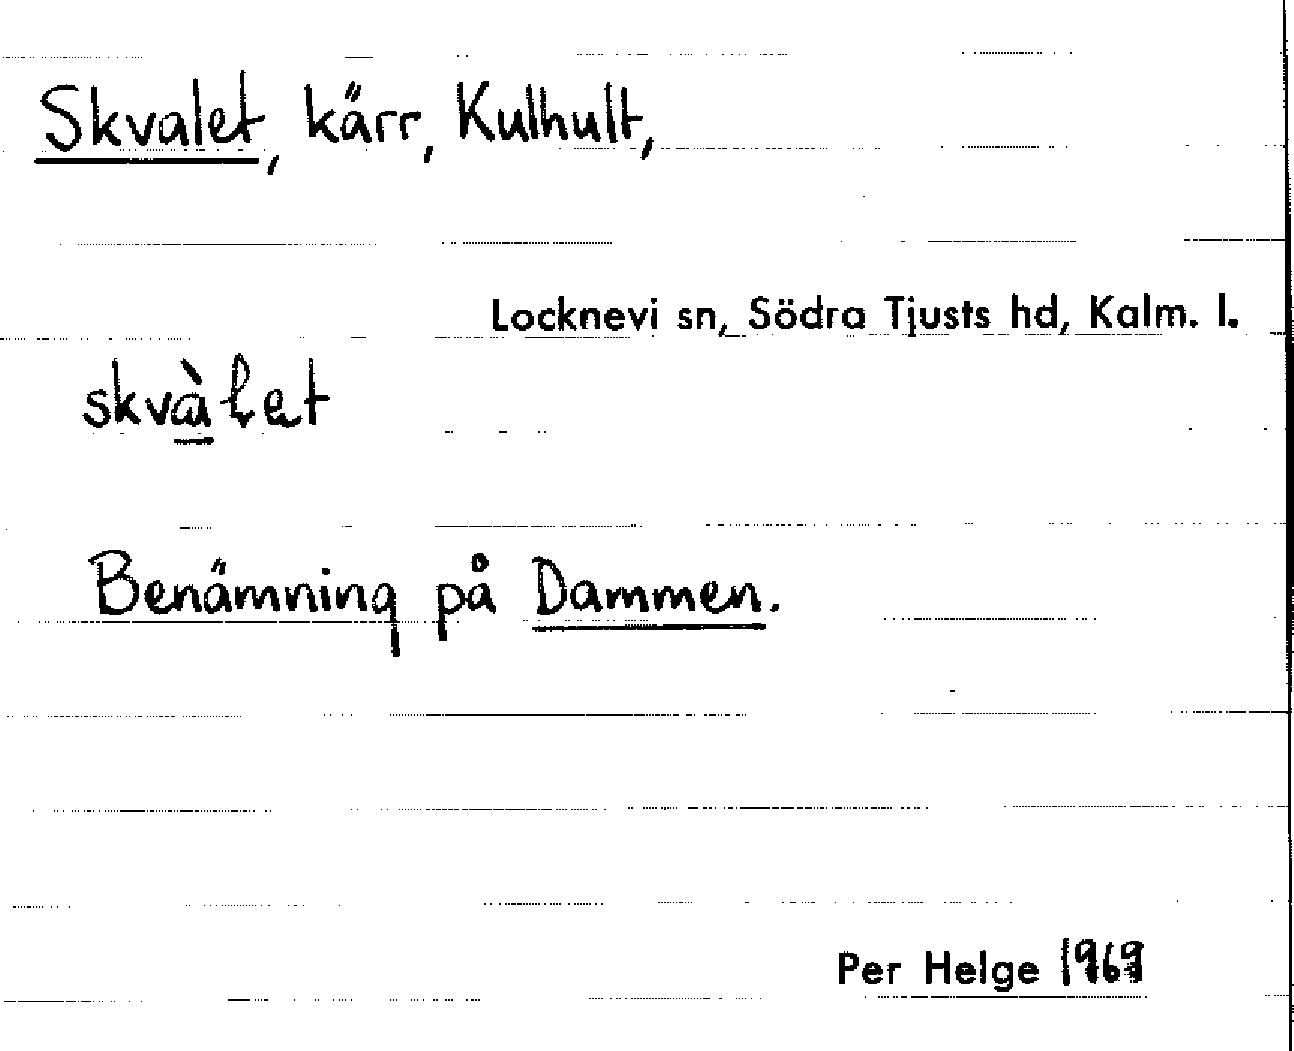 Skvalet, kärr, Kulhult,
Locknevi sn, Södra Tjusts hd, Kalm. l.
skvàłet
Benämning på Dammen.
Per Helge 1969